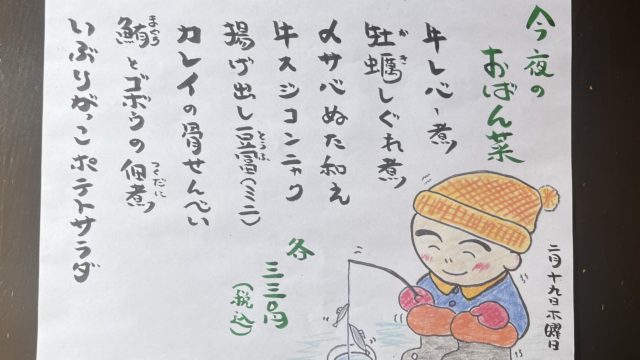 二月十九日木曜日
今夜の
おばん菜
牛レバー煮
牡蠣しぐれ煮
〆サバぬた和え
牛スジコンニャク
揚げ出し豆富(ミニ)
カレイの骨せんべい
鮪とゴボウの佃煮
いぶりがっこポテトサラダ
各
三三〇円
(税込)